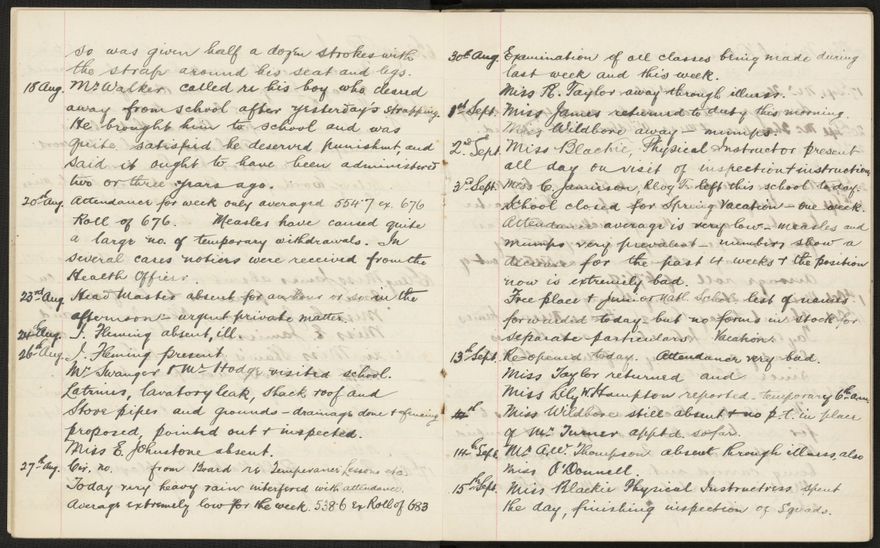 so was given half a dozen strokes with
the strap around his seat and legs.
18 Aug. Mr Walker called re his boy who cleared
away from school after yesterday's strapping.
He brought him to school and was
quite satisfied he deserved punishmt, and
said it ought to have been administered
two or three years ago.
20th Aug. Attendance for week only averaged 554.7 ex. 676
Roll of 676. Measles have caused quite
a large no. of temporary withdrawals. In
several cases notices were received from the
Health Officer.
23rd Aug. Head Master absent for an hour or so in the
afternoon - urgent private matter.
24th Aug. I. Fleming absent, ill.
26th Aug. I. Fleming present
Mr Swanger & Mr Hodge visited school.
Latrines, lavatory leak, shack roof and
Stove pipes and grounds - drainage done & fencing
proposed, pointed out & inspected.
Miss E. Johnstone absent.
27th Aug. Cir. no. from Board re Temperance Lessons etc.
Today very heavy rain interfered with attendance.
Average extremely low for the week. 538.6 ex Roll of 683
30th Aug. Examination of all classes being made during
last week and this week.
Miss R. Taylor away through illness.
1st Sept. Miss James returned to duty this morning.
Miss Wildbore away - mumps.
2nd Sept. Miss Blackie, Physical Instructor present
all day on visit of inspection & instruction.
3rd Sept. Miss C. Jamieson, left this school today.
School closed for Spring Vacation - one week.
Attendance average is very low - measles and
mumps very prevalent - numbers show a
decrease for the past 4 weeks & the position
now is extremely bad.
Free place & Junior Natl. Schol. list of names
forwarded today but no forms in stock for
separate particulars. Vacation.
13th Sept. Re-opened today. Attendance very bad.
Miss Taylor returned and
Miss Lily K. Hampton reported - temporary
Miss Wildbore still absent & no p.t. in place
of Mr Turner apptd. so far.
14th Sept. Mr Thompson absent through illness, also
Miss O'Donnell.
15th Sept. Miss Blackie Physical Instructress spent
the day, finishing inspection of Squads.